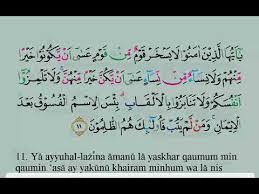 يٰٓاَيُّهَا الَّذِيْنَ اٰمَنُوْا لَا يَسْخَرْ قَوْمٌ مِّنْ قَوْمٍ عَسٰٓى اَنْ يَّكُوْنُوْا خَيْرًا
مِّنْهُمْ وَلَا نِسَاۤءٌ مِّنْ نِّسَاۤءٍ عَسٰٓى اَنْ يَّكُنَّ خَيْرًا مِّنْهُنَّۚ وَلَا تَلْمِزُوْٓا
اَنْفُسَكُمْ وَلَا تَنَابَزُوْا بِالْاَلْقَابِۗ بِئْسَ الِاسْمُ الْفُسُوْقُ بَعْدَ
الْاِيْمَانِۚ وَمَنْ لَّمْ يَتُبْ فَاُولٰۤىِٕكَ هُمُ الظّٰلِمُوْنَ ١١
11. Yā ayyuhal-lażīna āmanū lā yaskhar qaumum min
qaumin 'asā ay yakūnū khairam minhum wa lā nis